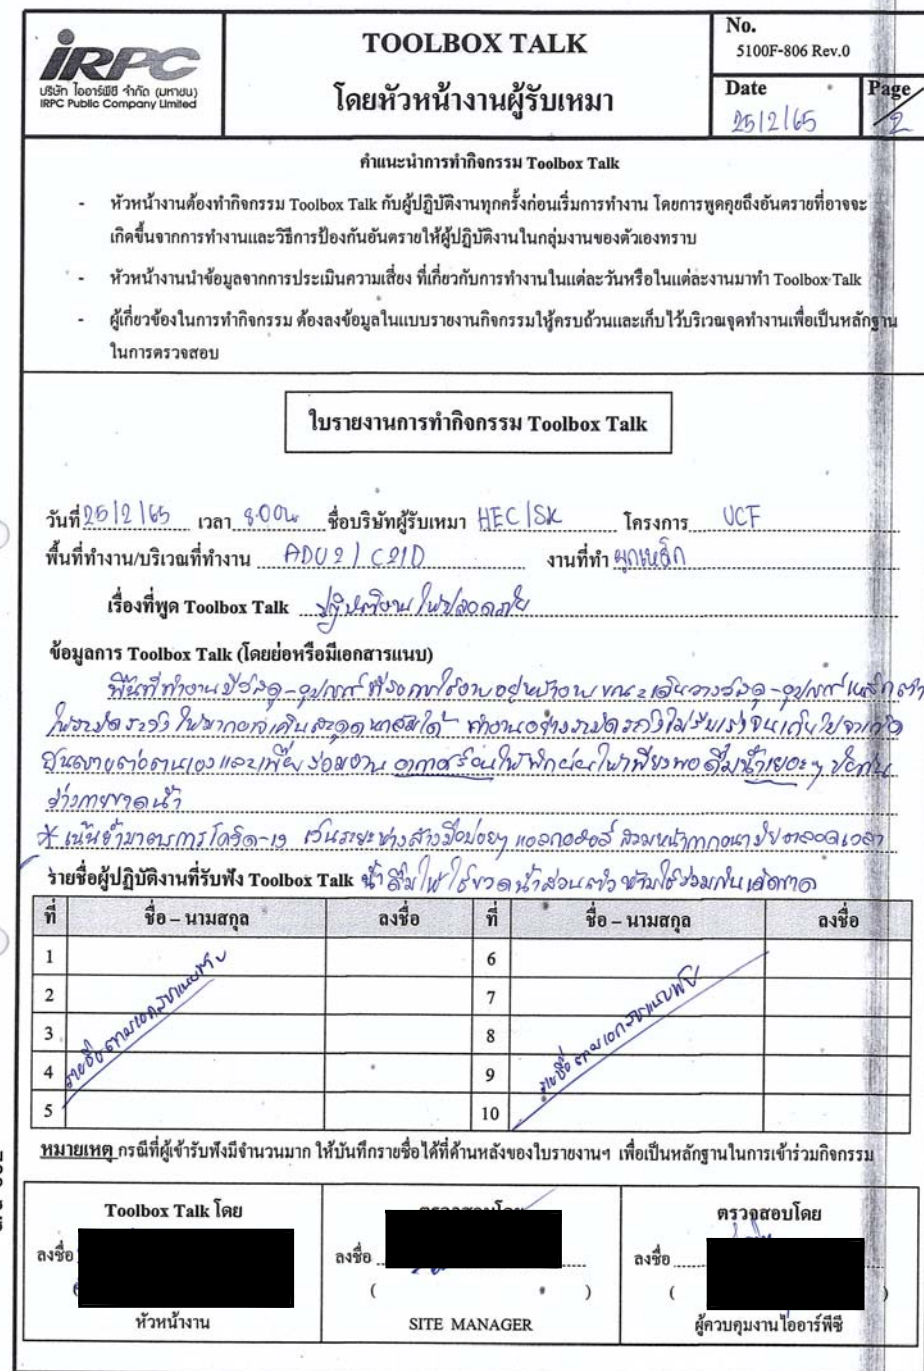 iRPC
บริษัท ไออาร์พีซี จำกัด (มหาชน)
IRPC Public Company Limited
TOOLBOX TALK
โดยหัวหน้างานผู้รับเหมา
No.
5100F-806 Rev.0
Date
25/2/65
Page
2
คำแนะนำการทำกิจกรรม Toolbox Talk
- หัวหน้างานต้องทำกิจกรรม Toolbox Talk กับผู้ปฏิบัติงานทุกครั้งก่อนเริ่มการทำงาน โดยการพูดคุยถึงอันตรายที่อาจจะ
เกิดขึ้นจากการทำงานและวิธีการป้องกันอันตรายให้ผู้ปฏิบัติงานในกลุ่มงานของตัวเองทราบ
- หัวหน้างานนำข้อมูลจากการประเมินความเสี่ยง ที่เกี่ยวกับการทำงานในแต่ละวันหรือในแต่ละงานมาทำ Toolbox Talk
- ผู้เกี่ยวข้องในการทำกิจกรรม ต้องลงข้อมูลในแบบรายงานกิจกรรมให้ครบถ้วนและเก็บไว้บริเวณจุดทำงานเพื่อเป็นหลักฐาน
ในการตรวจสอบ
ใบรายงานการทำกิจกรรม Toolbox Talk
วันที่ 25/2/65 เวลา 8.00น. ชื่อบริษัทผู้รับเหมา HEC/SK โครงการ UCF
พื้นที่ทำงาน/บริเวณที่ทำงาน ADU2/C21D งานที่ทำ ผูกเหล็ก
เรื่องที่พูด Toolbox Talk ปฏิบัติงานให้ปลอดภัย
ข้อมูลการ Toolbox Talk (โดยย่อหรือมีเอกสารแนบ)
พื้นที่ทำงานมีวัสดุ-อุปกรณ์ที่รอการใช้งานอยู่หน้างาน ขณะเดินวางวัสดุ-อุปกรณ์ เหล็ก
ให้ระมัดระวังให้มากอาจเดินสะดุดหกล้มได้ ทำงานอย่างระมัดระวังไม่รีบเร่งจนเกินไปจะเกิด
อันตรายต่อตนเองและเพื่อนร่วมงาน อากาศร้อนให้พักผ่อนให้เพียงพอ ดื่มน้ำเยอะๆ ป้องกัน
ร่างกายขาดน้ำ
* เน้นย้ำมาตรการโควิด-19 เว้นระยะห่าง ล้างมือบ่อยๆ แอลกอฮอล์ สวมหน้ากากอนามัยตลอดเวลา
รายชื่อผู้ปฏิบัติงานที่รับฟัง Toolbox Talk น้ำดื่มให้ใช้ขวดน้ำส่วนตัว ห้ามใช้ร่วมกันเด็ดขาด
ที่ ชื่อ – นามสกุล ลงชื่อ ที่ ชื่อ – นามสกุล ลงชื่อ
1 6
2 7
3 8
4 9
5 10
รายชื่อตามเอกสารแนบท้าย
รายชื่อตามเอกสารแนบท้าย
หมายเหตุ กรณีที่ผู้เข้ารับฟังมีจำนวนมาก ให้บันทึกรายชื่อได้ที่ด้านหลังของใบรายงานฯ เพื่อเป็นหลักฐานในการเข้าร่วมกิจกรรม
Toolbox Talk โดย
ลงชื่อ
หัวหน้างาน
ลงชื่อ
( )
SITE MANAGER
ตรวจสอบโดย
ลงชื่อ
( )
ผู้ควบคุมงานไออาร์พีซี